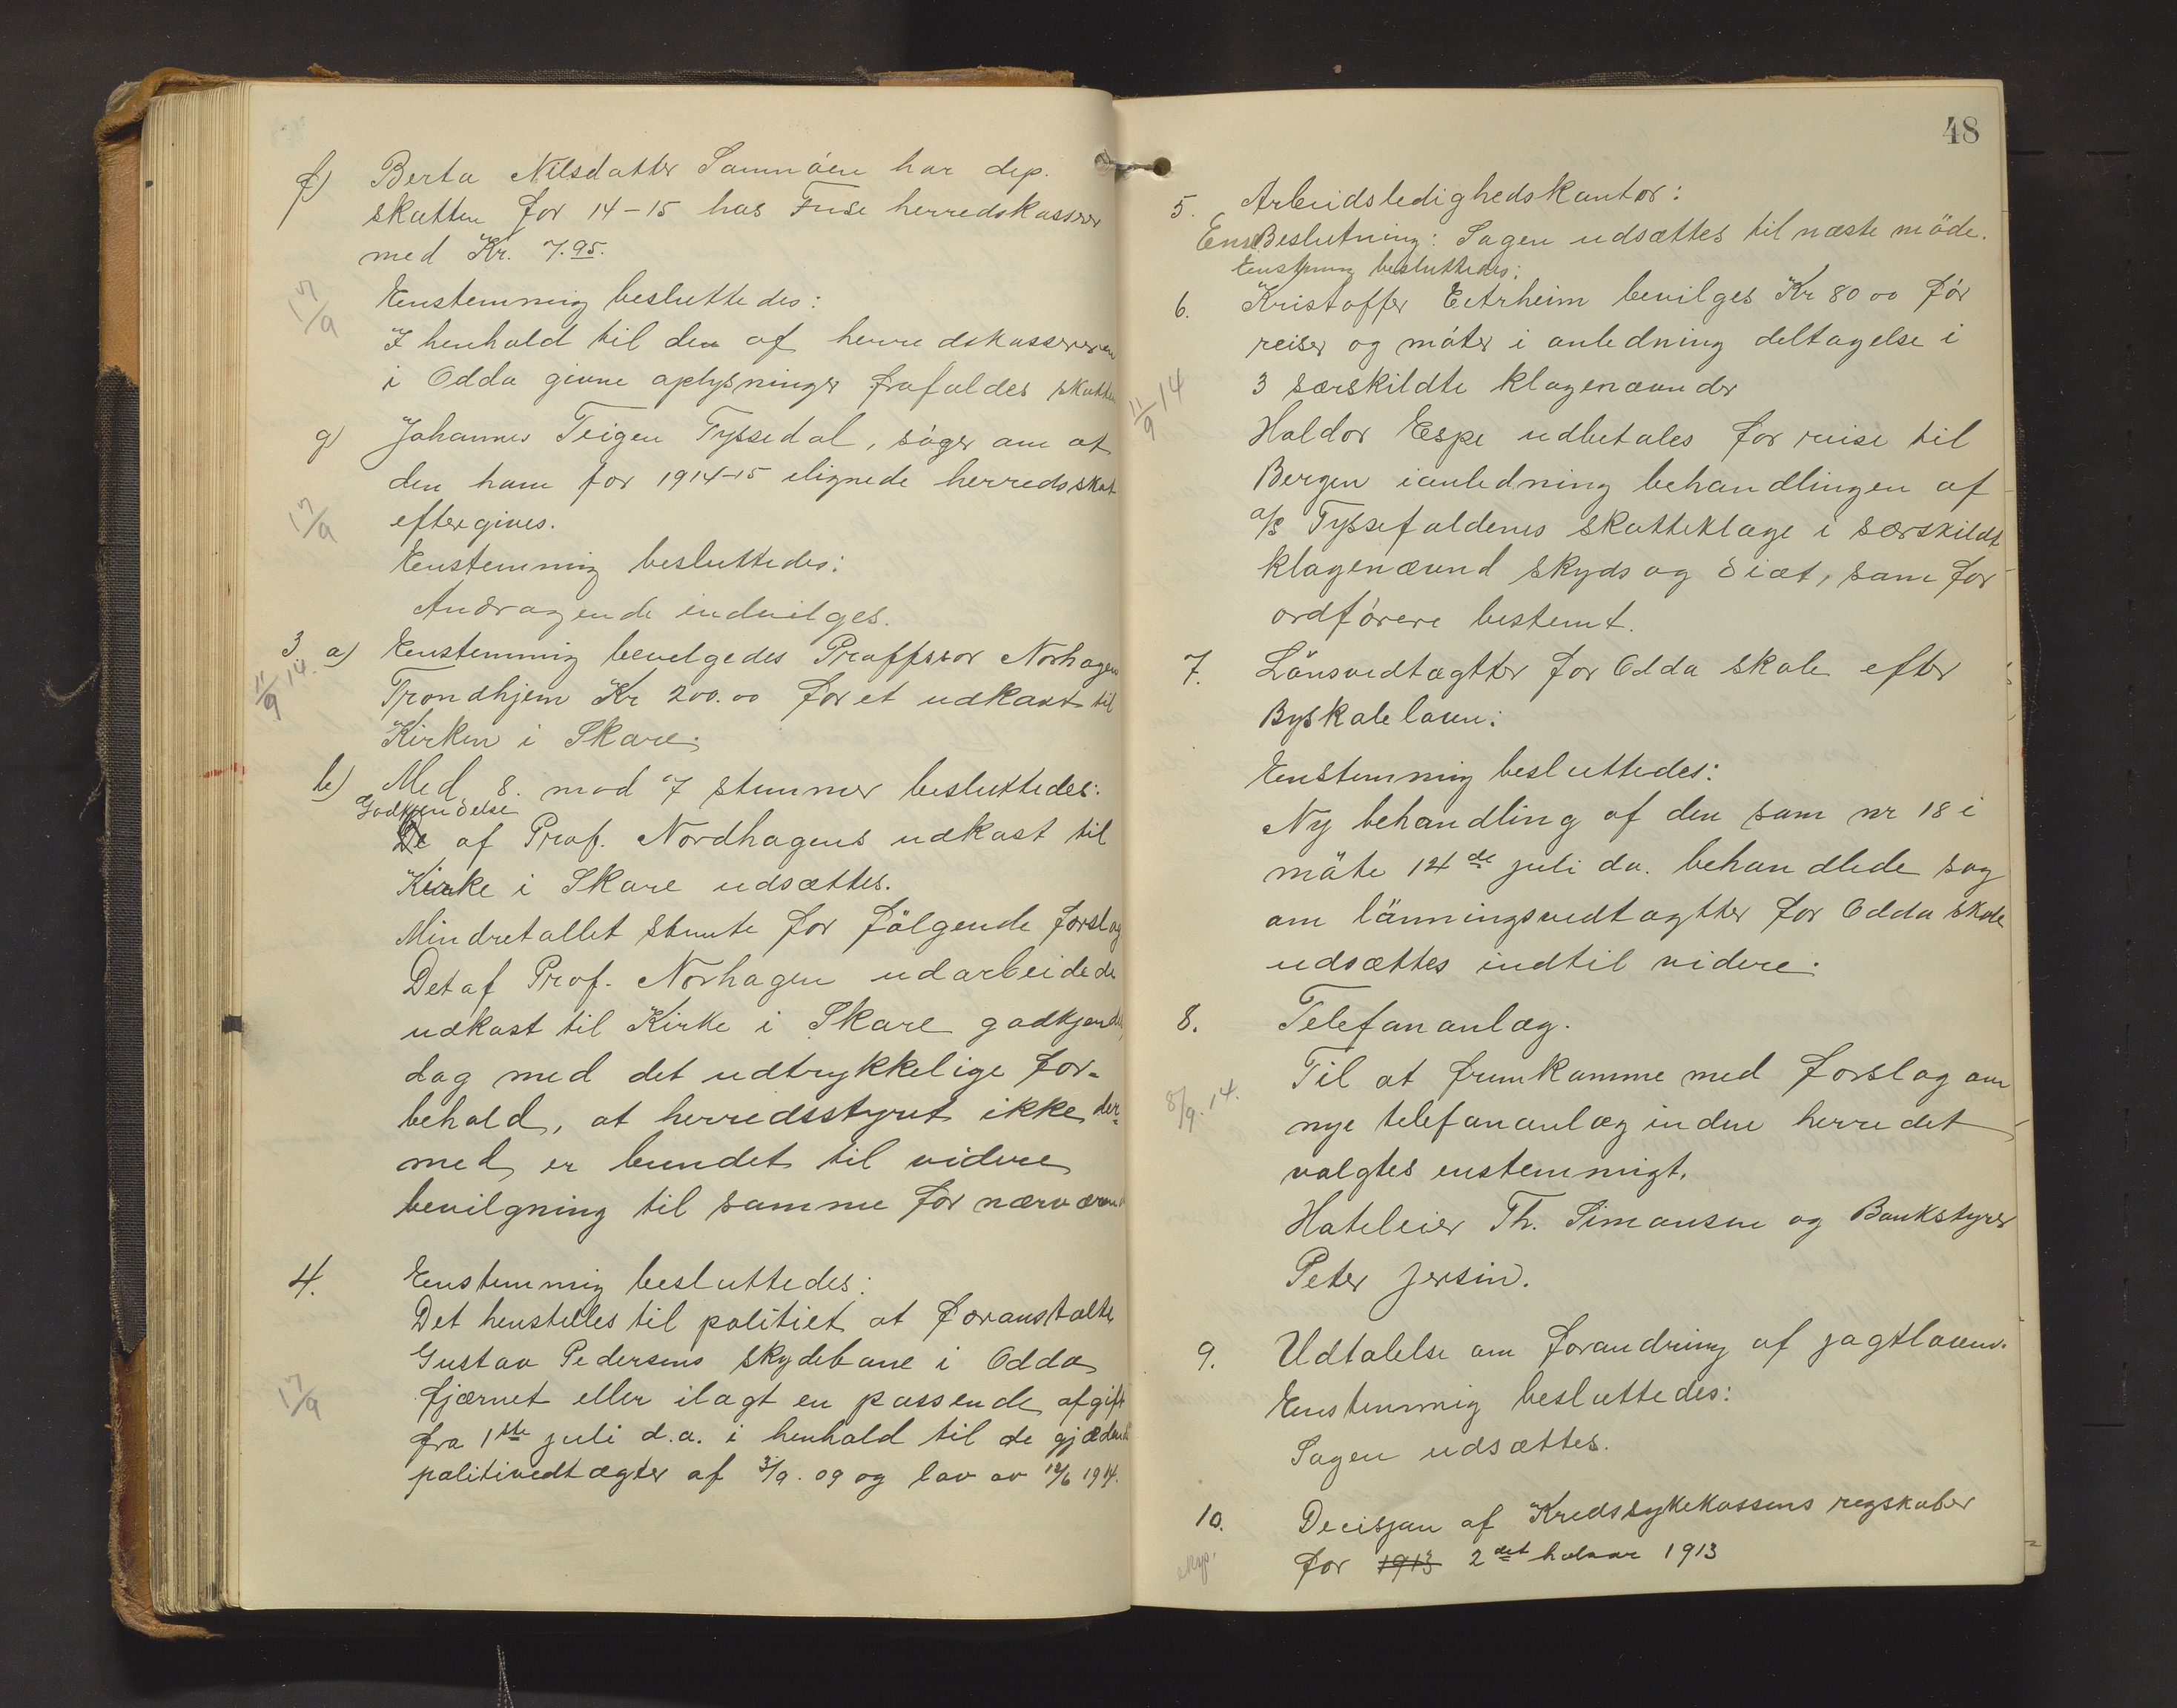 f) Berta Nilsdatter Samnøen har dep.
skatten for 14-15 hos Fuse herredskasserer
med Kr. 7.95.
17/9 Enstemmig besluttedes:
I henhold til den af herredskassereren
i Odda givne oplysninger frafaldes skatten
g) Johannes Teigen Tyssedal, søger om at
den ham for 1914-15 ilignede herredsskat
17/9 eftergives.
Enstemmig besluttedes:
Andragende indvilges.
3 a) Enstemmig bevelgedes Proffssor Norhagen
11/9 14. Trondhjem Kr 200.00 for et udkast til
Kirken i Skare.
b) Med 8. mod 7 stemmer besluttedes:
Godkjendelse
af Prof. Nordhagens udkast til
Kirke i Skare udsættes.
Mindretallet stemte for følgende forslag
Det af Prof. Norhagen udarbeidede
udkast til Kirke i Skare godkjendes,
dog med det udtrykkelige for-
behold, at herredsstyret ikke der-
med er bundet til videre
bevilgning til samme for nærværende
4. Enstemmig besluttedes:
Det henstilles til politiet at foranstalte
Gustav Pedersens skydebane i Odda
17/9 fjærnet eller ilagt en passende afgift
fra 1ste juli d.a. i henhold til de gjældende
politivedtægter af 3/9. 09 og lov av 12/6 1914.
48
5. Arbeidsledighedskontor:
Ens Beslutning: Sagen udsættes til næste møde.
Enstemmig besluttedes:
6. Kristoffer Eitrheim bevilges Kr 80 00 for
reiser og møter i anledning deltagelse i
11/9 14 3 særskildte klagenævnder
Haldor Espe udbetales for reise til
Bergen ianledning behandlingen af
a/s Tyssefaldenes skatteklage i særskildt
klagenævnd skyds og diæt, som for
ordførere bestemt.
7. Lønsvedtægtter for Odda skole efter
Byskoleloven:
Enstemmig besluttedes:
Ny behandling af den som nr 18 i
møte 14de juli da. behandlede sag
om lønningsvedtagtter for Odda skole
udsættes indtil videre.
8. Telefonanlæg.
Til at fremkomme med forslag om
8/9. 14. nye telefonanlæg inden herredet
valgtes enstemmigt.
Hoteleier Th. Simonsen og Bankstyrer
Peter Jersin.
9. Udtalelse om forandring af jagtloven.
Enstemmig besluttedes:
Sagen udsættes.
10. Decisjon af Kredssykekassens regskaber
for 1913 2det halvaar 1913